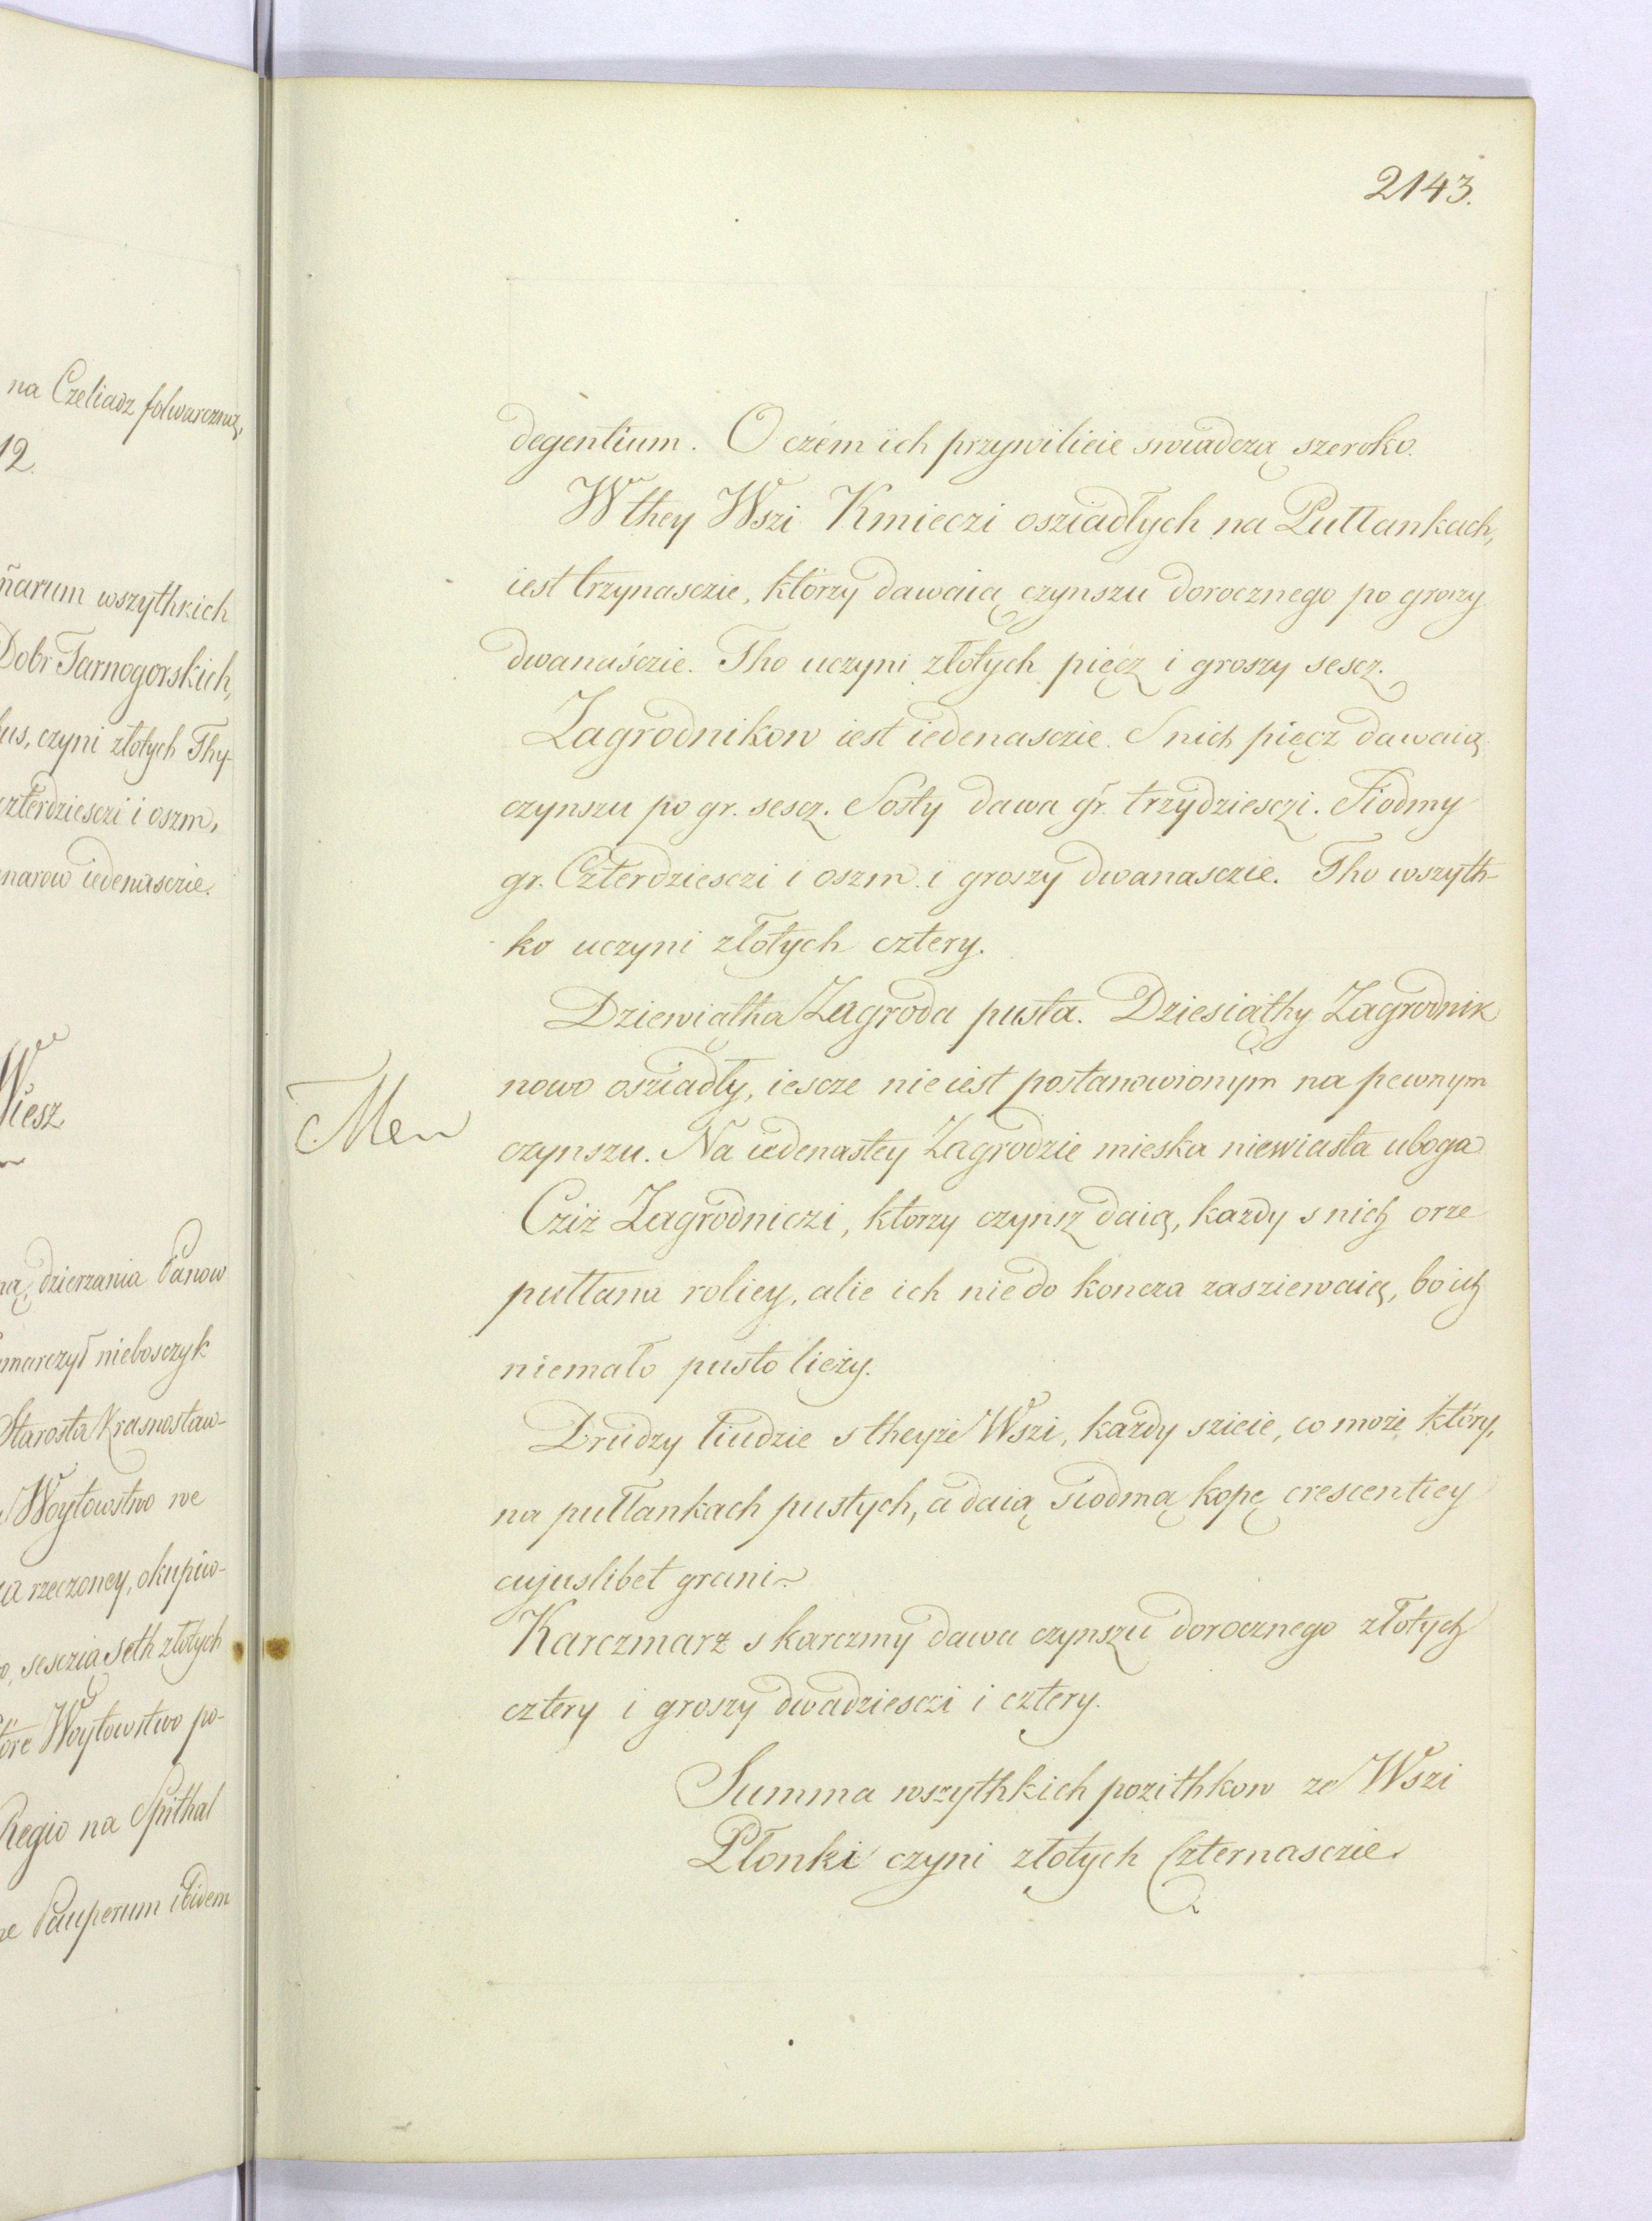 na Czeliadz folwarczną,
12.
narum wszythkich
Dobr Tarnogorskich,
czyni złotych Thy-
czterdziesczi i oszm,
iedenasczie.
Wiesz
dzierzania Panow
niebosczyk
Starosta Krasnostaw-
Woytowstwo we
rzeczoney, okupiw-
sesczią seth złotych
Woytowstwo po-
Regio na Spithal
Pauperum ibidem
2143.
degentium. O czém ich przywilieie swiadczą szeroko.
W they Wszi Kmieczi osziadłych na Pułłankach,
iest trzynasczie, którzy dawaią czynszu dorocznego po groszy
dwanaśczie. Tho uczyni złotych pięcz i groszy sescz.
Zagrodnikow iest iedenasczie. S nich pięcz dawaią
czynszu po gr. sescz. Sosty dawa gr. trzydziesczi. Siodmy
gr. Czterdziesczi i oszm i groszy dwanasczie. Tho wszyth-
ko uczyni złotych cztery.
Dziewiątha Zagroda pusta. Dziesiąthy Zagrodnik
nowo osziadły, iescze nie iest postanowionym na pewnym
Men
czynszu. Na iedenastey Zagrodzie mieska niewiasta uboga
Cziż Zagrodniczi, ktorzy czynsz daią, kazdy s nich orze
pułłana roliey, alie ich nie do koncza zasziewaią, bo ich
niemało pusto lieży.
Drudzy liudzie s theyże Wszi, każdy szieie, co może który,
na pułłankach pustych, a daią siodmą kopę crescentiey
cujuslibet grani
Karczmarz s karczmy dawa czynszu dorocznego złotych
cztery i groszy dwadziesczi i cztery.
Summa wszythkich pozithkow ze Wszi
Płonki czyni złotych Czternasczie